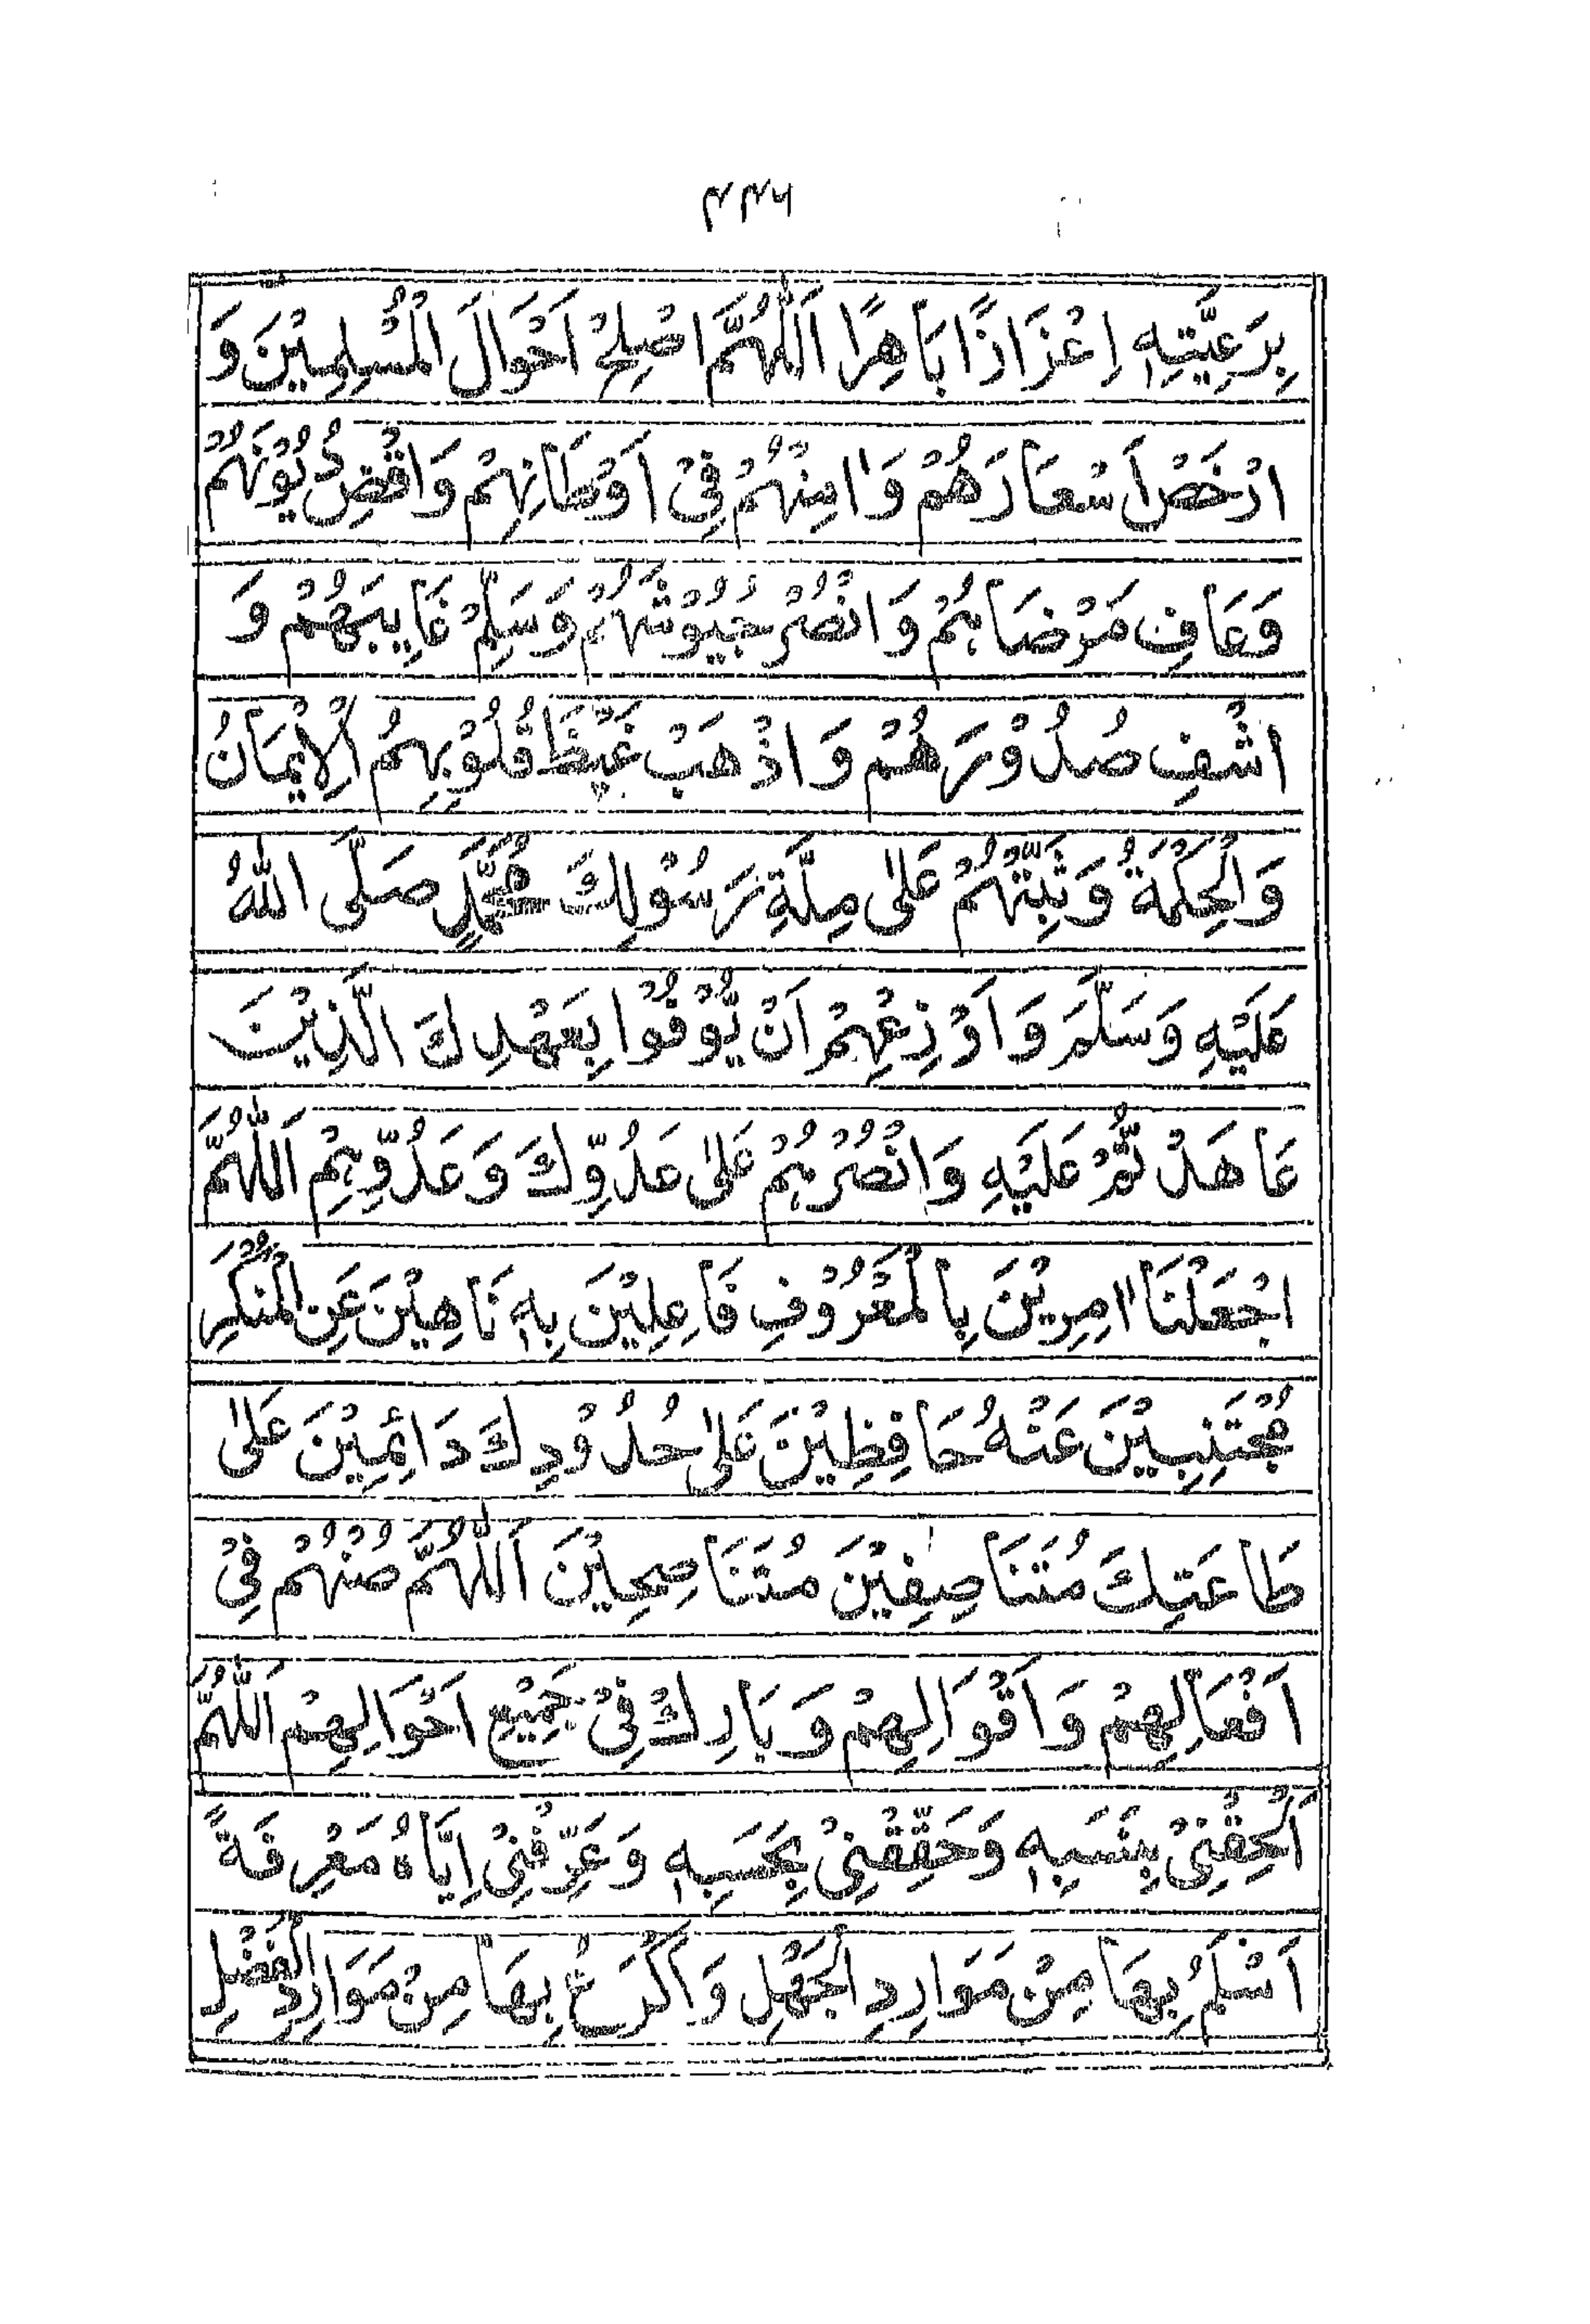 ۴۴۶
بِرَعِيَّتِهٖ اِعْزَازًا بَاهِرًا اَللّٰهُمَّ اصْلِحْ اَحْوَالَ الْمُسْلِمِيْنَ وَ
ارْخَصْ اَسْعَارَهُمْ وَاٰمِنْهُمْ فِيْ اَوْطَانِهِمْ وَاقْضِ دُيُوْنَهُمْ
وَعَافِ مَرْضَاهُمْ وَانْصُرْ جُيُوْشَهُمْ وَسَلِّمْ غَايِبَهُمْ وَ
اشْفِ صُدُوْرَهُمْ وَاذْهَبْ غَيْظَ قُلُوْبِهِمُ الْاِيْمَانُ
وَالْحِكْمَةُ وَثَبِّتْهُمْ عَلٰى مِلَّةِ رَسُوْلِكَ مُحَمَّدٍ صَلَّى اللّٰهُ
عَلَيْهِ وَسَلَّمَ وَاَوْزِعْهِمْ اَنْ يُّوْفُوْا بِعَهْدِكَ الَّذِيْنَ
عَاهَدْتُّمْ عَلَيْهِ وَانْصُرْهُمْ عَلٰى عَدُوِّكَ وَعَدُوِّهِمْ اَللّٰهُمَّ
اجْعَلْنَا اٰمِرِيْنَ بِالْمَعْرُوْفِ فَاعِلِيْنَ بِهٖ نَاهِيْنَ عَنِ الْمُنْكَرِ
مُجْتَنِبِيْنَ عَنْهُ حَافِظِيْنَ عَلٰى حُدُوْدِكَ دَائِمِيْنَ عَلٰى
طَاعَتِكَ مُتَنَاصِفِيْنَ مُتَنَاصِحِيْنَ اَللّٰهُمَّ صُنْهُمْ فِيْ
اَفْعَالِهِمْ وَاَقْوَالِهِمْ وَبَارِكْ فِيْ جَمِيْعِ اَحْوَالِهِمْ اَللّٰهُمَّ
اَلْحِقْنِيْ بِنَسَبِهٖ وَحَقِّقْنِيْ بِحَسَبِهٖ وَعَرِّفْنِيْ اِيَّاهُ مَعْرِفَةً
اَسْلَمُ بِهَا مِنْ مَوَارِدِ الْجَهْلِ وَاَكْرَعُ بِهَا مِنْ مَوَارِدِ الْفَضْلِ